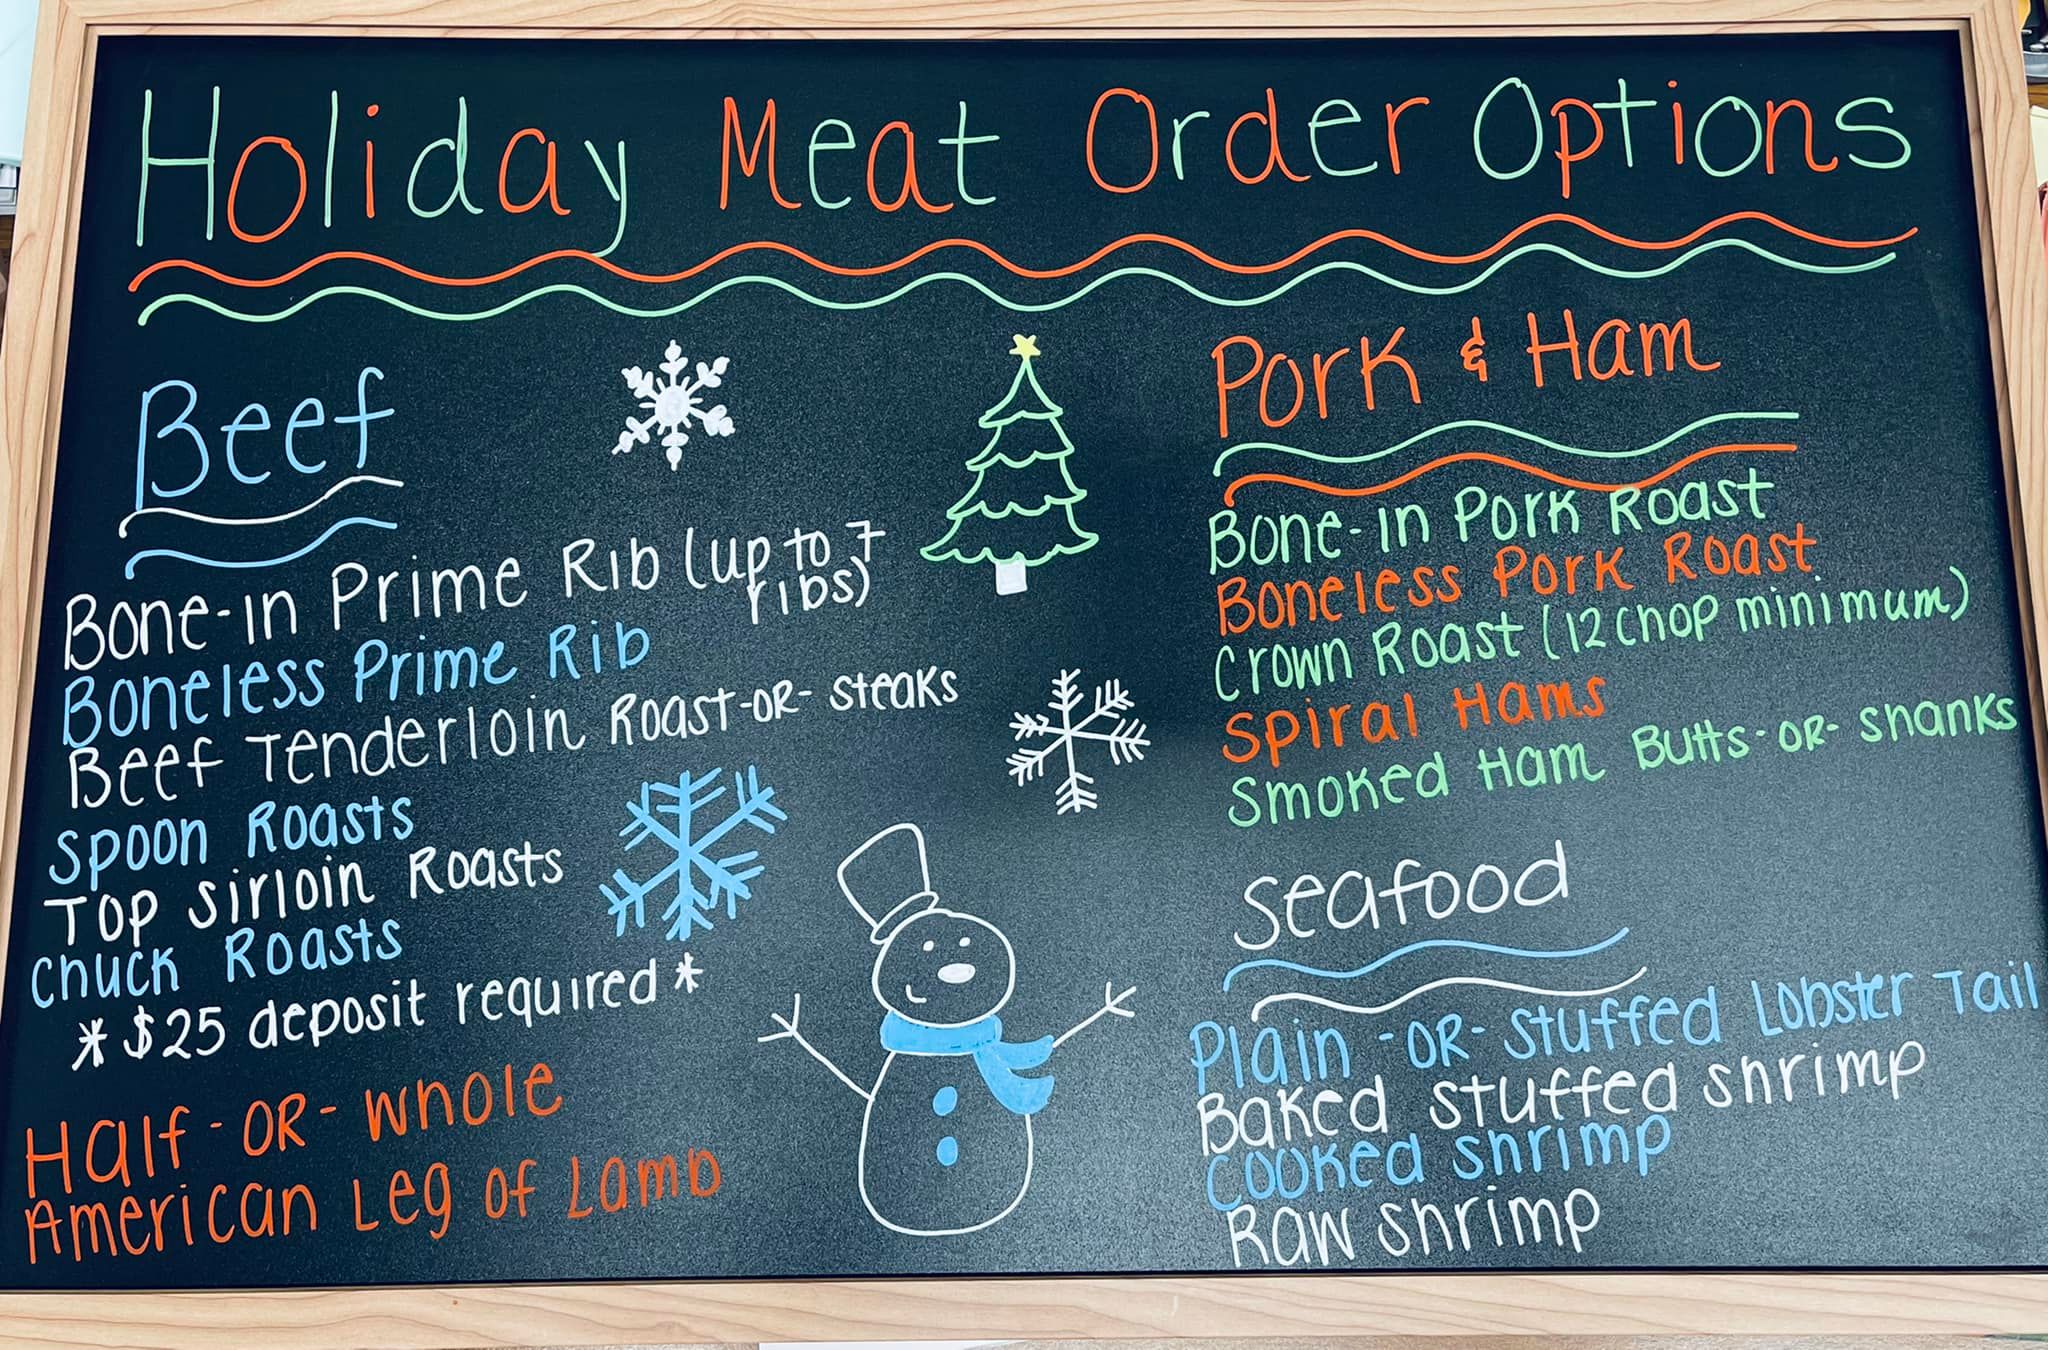 Holiday Meat Order Options
Beef
Bone-in Prime Rib (up to 7
ribs)
Boneless Prime Rib
Beef Tenderloin Roast -OR- Steaks
Spoon Roasts
Top Sirloin Roasts
Chuck Roasts
*$25 deposit required*
Half -OR- Whole
American Leg of Lamb
Pork & Ham
Bone-in Pork Roast
Boneless Pork Roast
Crown Roast (12 chop minimum)
Spiral Hams
Smoked Ham Butts -OR- Shanks
Seafood
Plain -OR- Stuffed Lobster Tail
Baked Stuffed Shrimp
Cooked Shrimp
Raw Shrimp